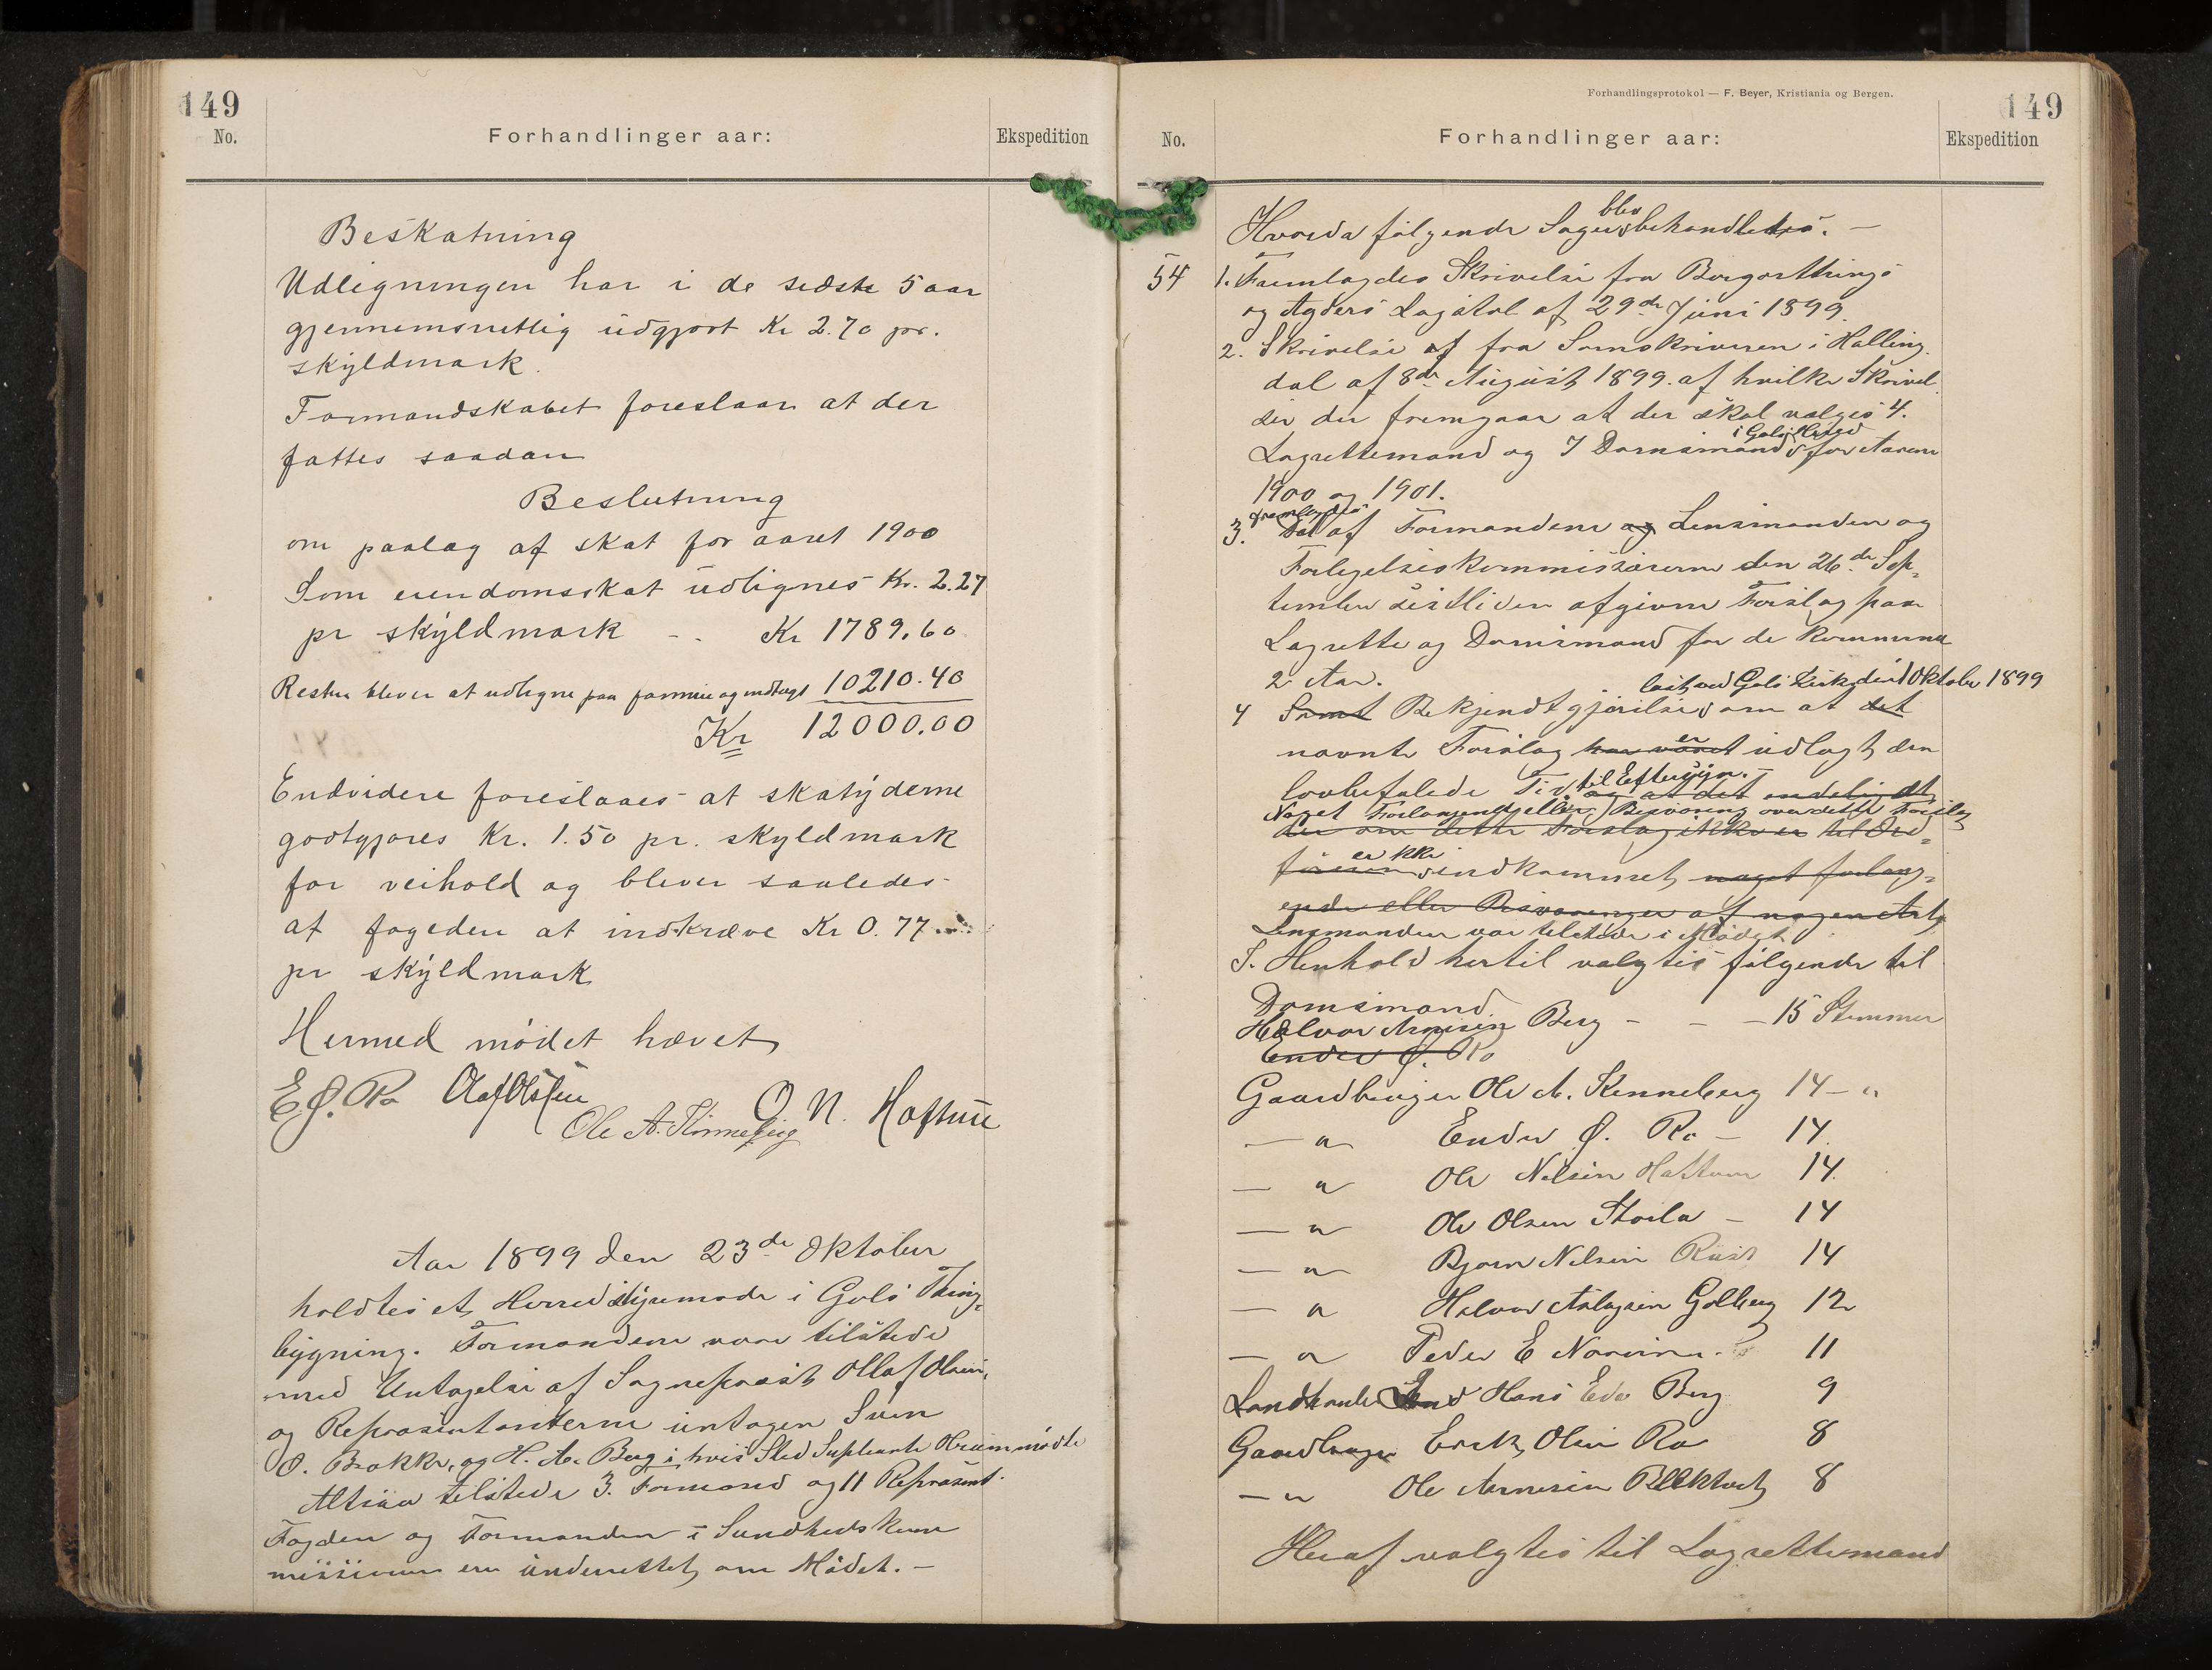 149
No. Forhandlinger aar: Ekspedition
Beskatning
Udligningen har i de sidste 5 aar
gjennemsnitlig udgjort Kr 2.70 pr.
skyldmark.
Formandskabet foreslaar at der
fattes saadan
Beslutning
om paalag af skat for aaret 1900
Som eiendomsskat udlignes Kr. 2.27
pr skyldmark - - Kr 1789.60
Resten bliver at udligne paa formue og indtægt 10210.40
Kr 12000.00
Endvidere foreslaaes at skatyderne
godtgjøres Kr. 1.50 pr. skyldmark
for veihold og bliver saaledes
af fogeden at indkræve Kr 0.77
pr skyldmark
Hermed mødet hævet
E Ø. Ro Olaf Olsen
Ole A. Kinneberg O. N. Haftun
Aar 1899 den 23de Oktober
holdtes et Herredstyremøde i Gols Thing-
bygning. Formændene vare tilstede
med Untagelse af Sogneprest Ollaf Olsen,
og Repræsentanterne untagen Sven
O. Brakke, og H. A. Berg i hvis Sted Supleante mødte
Altsaa tilstede 3. Formænd og 11 Repræsent.
Fogden og Formanden i Sundhedskom
missionen ere underrettet om Mødet. -
Forhandlingsprotokol — F. Beyer, Kristiania og Bergen.
149
No. Forhandlinger aar: Ekspedition
blev
Hvorda følgende Sager behandledes. -
54 1. Fremlagdes Skrivelse fra Borgarthings
og Agders Lagstol af 29de Juni 1899.
2. Skrivelse af fra Sorenskriveren i Halling
dal af 8de August 1899. af hvilke Skrivel
ser der fremgaar at der skal vælges 4.
i Gols Herred
Lagrettemænd og 7 Domsmænd for Aarene
1900 og 1901.
fremlagdes
3. Det af Formændene og Lensmanden og
Forligelseskommissærerne den 26de Sep-
tember sidstleden afgivne Forslag paa
Lagrette og Domsmænd for de kommende
2 Aar.
læst ved Gols Kirke den 1 Oktober 1899
4 Samt Bekjendtgjørelse om at det
er
nævnte Forslag har været udlagt den
til Eftersyn. -
lovbefalede Tid. og at det endelig at
Noget Forlangende eller Besværing over dette Forslag
der om dette Forslag ikke er til Ord-
er ikke
føreren indkommet noget forlang-
ende eller Besværinger af nogen Art.
Lensmanden var tilstede i Mødet
I. Henhold hertil valgtes følgende til
Domsmænd.
Halvor Arnesen Berg - - - 15 Stemmer
Ender Ø. Ro
Gaardbruger Ole A. Kinneberg 14 - "
— " Ender Ø. Ro - 14.
— " Ole Nilsen Haftun 14.
— " Ole Olsen Storla - 14
— " Bjørn Nilsen Rust 14
— " Halvor Aslagsen Golberg 12
— " Peder E 11
Landhandler Hans Edv Berg 9
Gaardbruger Erik Olsen Ro 8
— " Ole Arnesen 8
Heraf valgtes til Lagrettemænd